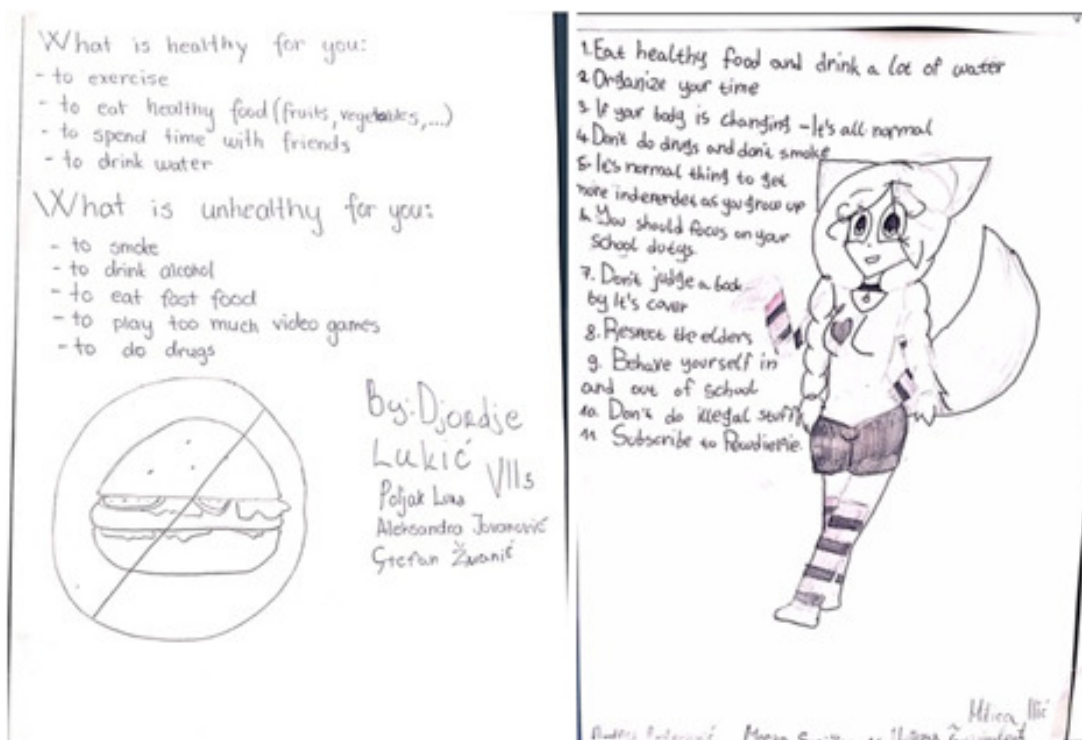 What is healthy for you:
- to exercise
- to eat healthy food (fruits, vegetables,...)
- to spend time with friends
- to drink water
What is unhealthy for you:
- to smoke
- to drink alcohol
- to eat fast food
- to play too much video games
- to do drugs
By: Djordje
Lukić
VIIs
Poljak
Aleksandra Jovanović
Stefan
1. Eat healthy food and drink a lot of water
2 Organize your time
3. If your body is changing - It's all normal
4. Don't do drugs and don't smoke
5. It's normal thing to get
more as you grow up
6. You should focus on your
school dutys
7. Don't judge a book
by It's cover
8. Respect the elders
9. Behave yourself in
and out of school
10. Don't do illegal stuff
11. Subscribe to Pewdiepie.
Milica Ilić